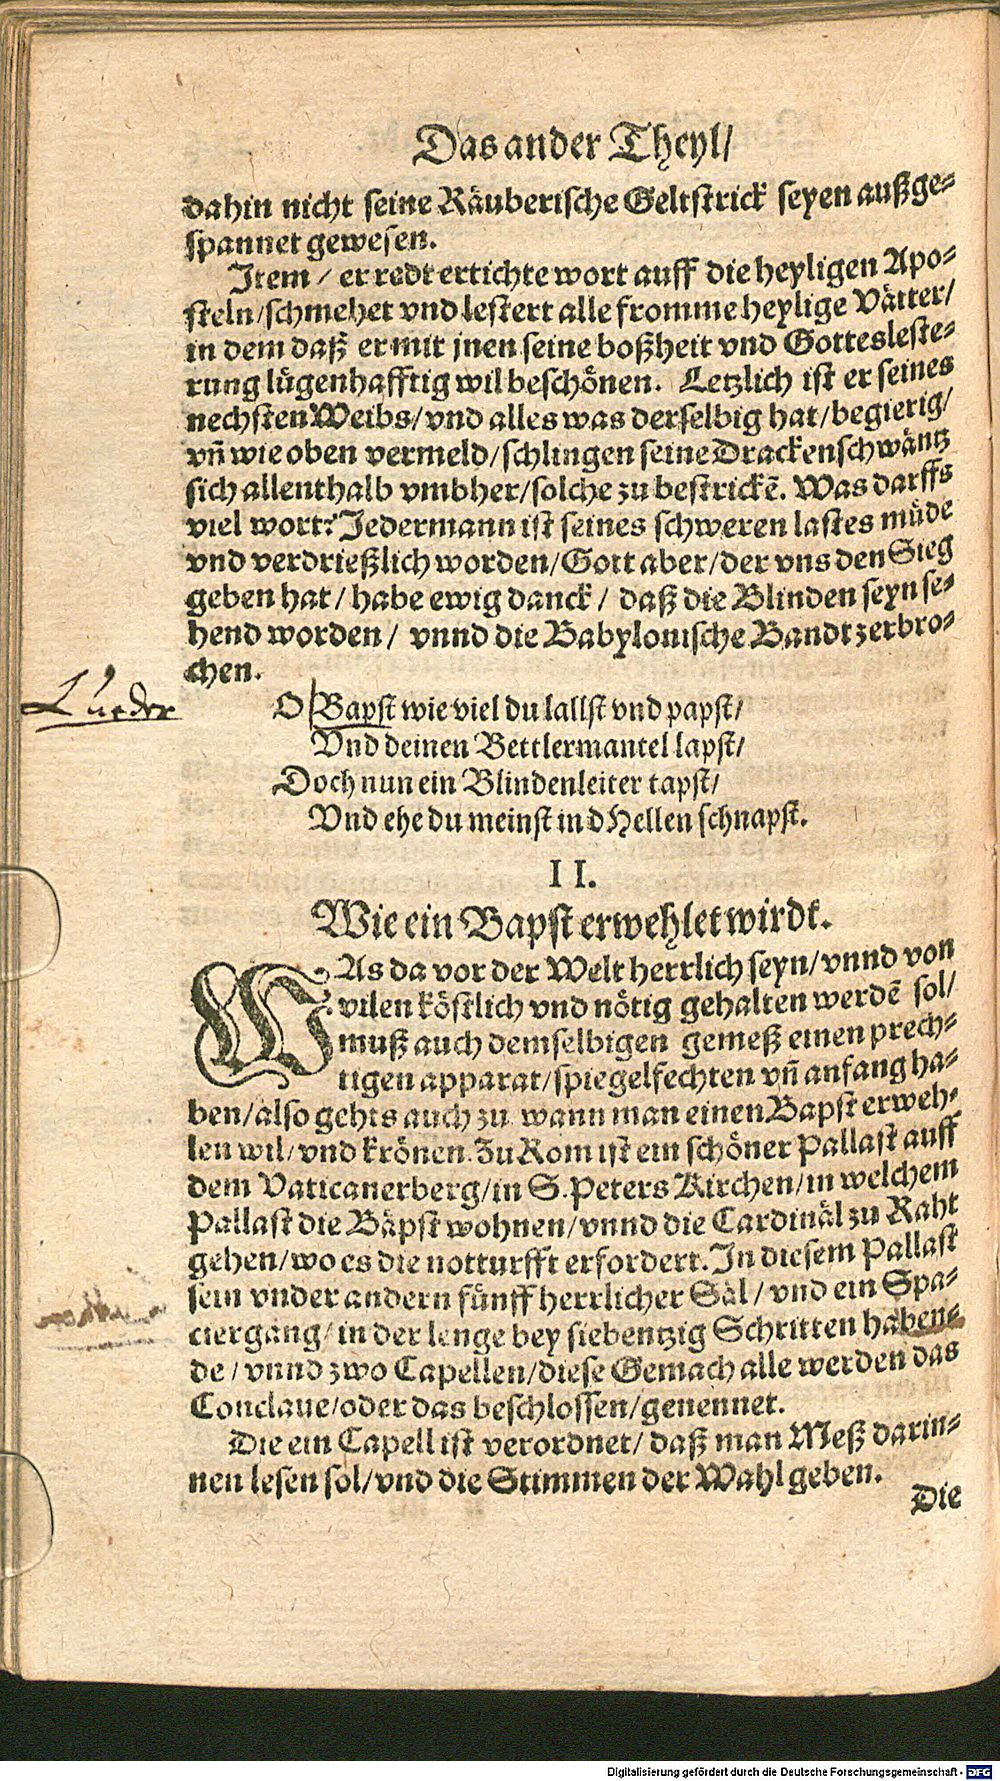 Das ander Theyl/
dahin nicht seine Räuberische Geltstrick seyen außge-
spannet gewesen.
Item / er redt ertichte wort auff die heyligen Apo-
steln/schmehet vnd lestert alle fromme heylige Vätter/
in dem daß er mit jnen seine boßheit vnd Gotteslestе-
rung lügenhafftig wil beschönen. Letzlich ist er seines
nechsten Weibs/vnd alles was derselbig hat/begierig/
vñ wie oben vermeld/schlingen seine Drackenschwäntz
sich allenthalb vmbher/solche zu bestrickẽ. Was darffs
viel wort? Jedermann ist seines schweren lastes müde
vnd verdrießlich worden/Gott aber/der vns den Sieg
geben hat/habe ewig danck/ daß die Blinden seyn se-
hend worden/ vnnd die Babylonische Bandt zerbro-
chen.
Lueder
O Bapst wie viel du lallst vnd papst/
Vnd deinen Bettlermantel lapst/
Doch nun ein Blindenleiter tapst/
Vnd ehe du meinst in d Hellen schnapst.
II.
Wie ein Bapst erwehlet wirdt.
WAs da vor der Welt herrlich seyn/vnnd von
vilen köstlich vnd nötig gehalten werdẽ sol/
muß auch demselbigen gemeß einen prech-
tigen apparat/spiegelfechten vñ anfang ha-
ben/also gehts auch zu wann man einen Bapst erweh-
len wil/vnd krönen. Zu Rom ist ein schöner Pallast auff
dem Vaticanerberg/in S. Peters Kirchen/in welchem
Pallast die Bäpst wohnen/vnnd die Cardinäl zu Raht
gehen/wo es die notturfft erfordert. In diesem Pallast
sein vnder andern fünff herrlicher Säl/vnd ein Spa-
ciergang/in der lenge bey siebentzig Schritten haben-
de/vnnd zwo Capellen/diese Gemach alle werden das
Conclaue/oder das beschlossen/genennet.
Die ein Capell ist verordnet/ daß man Meß darin-
nen lesen sol/vnd die Stimmen der Wahl geben.
Die
Digitalisierung gefördert durch die Deutsche Forschungsgemeinschaft - DFG